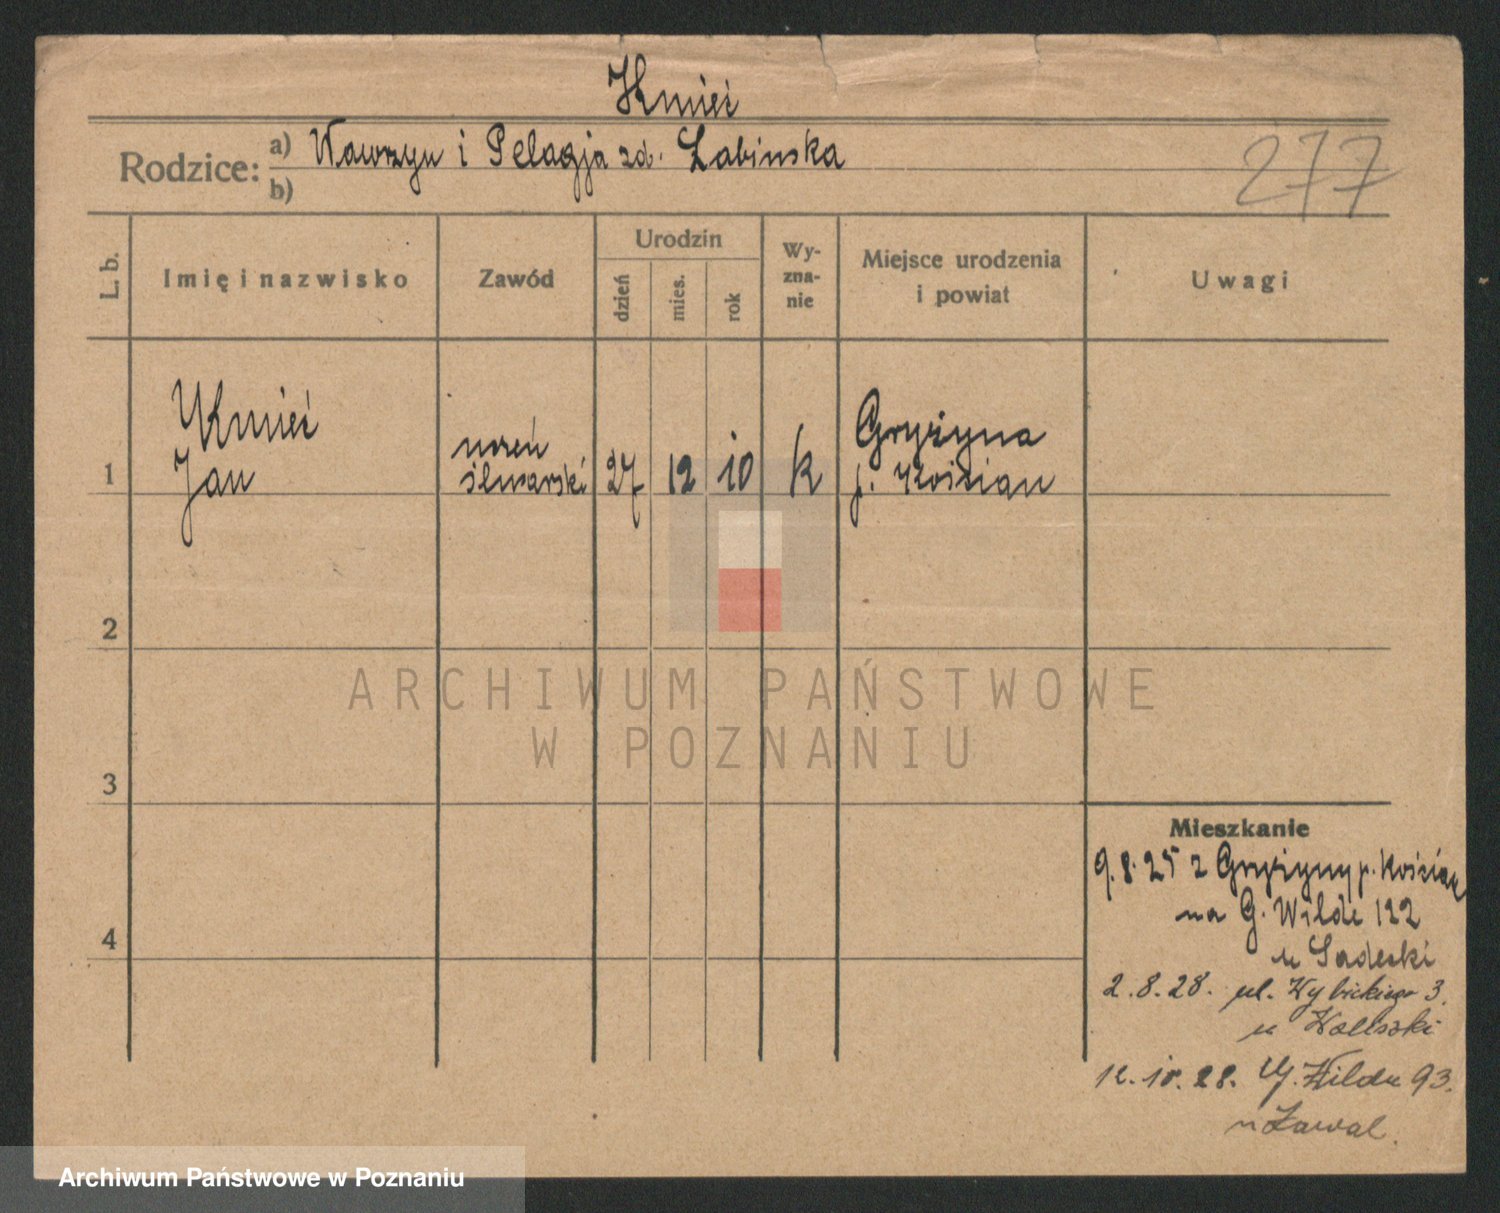 Kmieć
Rodzice: a) Wawrzyn i Pelagja zd. Łabinska
b)
277
L. b.
Imię i nazwisko
Zawód
Urodzin
dzień
mies.
rok
Wy-
zna-
nie
Miejsce urodzenia
i powiat
Uwagi
Kmieć
Jan
uczeń
ślusarski
27
12
10
k
Gryżyna
p. Kościan
1
2
3
4
Mieszkanie
9.8.25 z Gryżyny p. Kościan
na G. Wilde 122
u Sadecki
2.8.28. ul. Wybickiego 3.
u
12.10.28. G. Wilda 93.
u Zawal.
ARCHIWUM PAŃSTWOWE
W POZNANIU
Archiwum Państwowe w Poznaniu